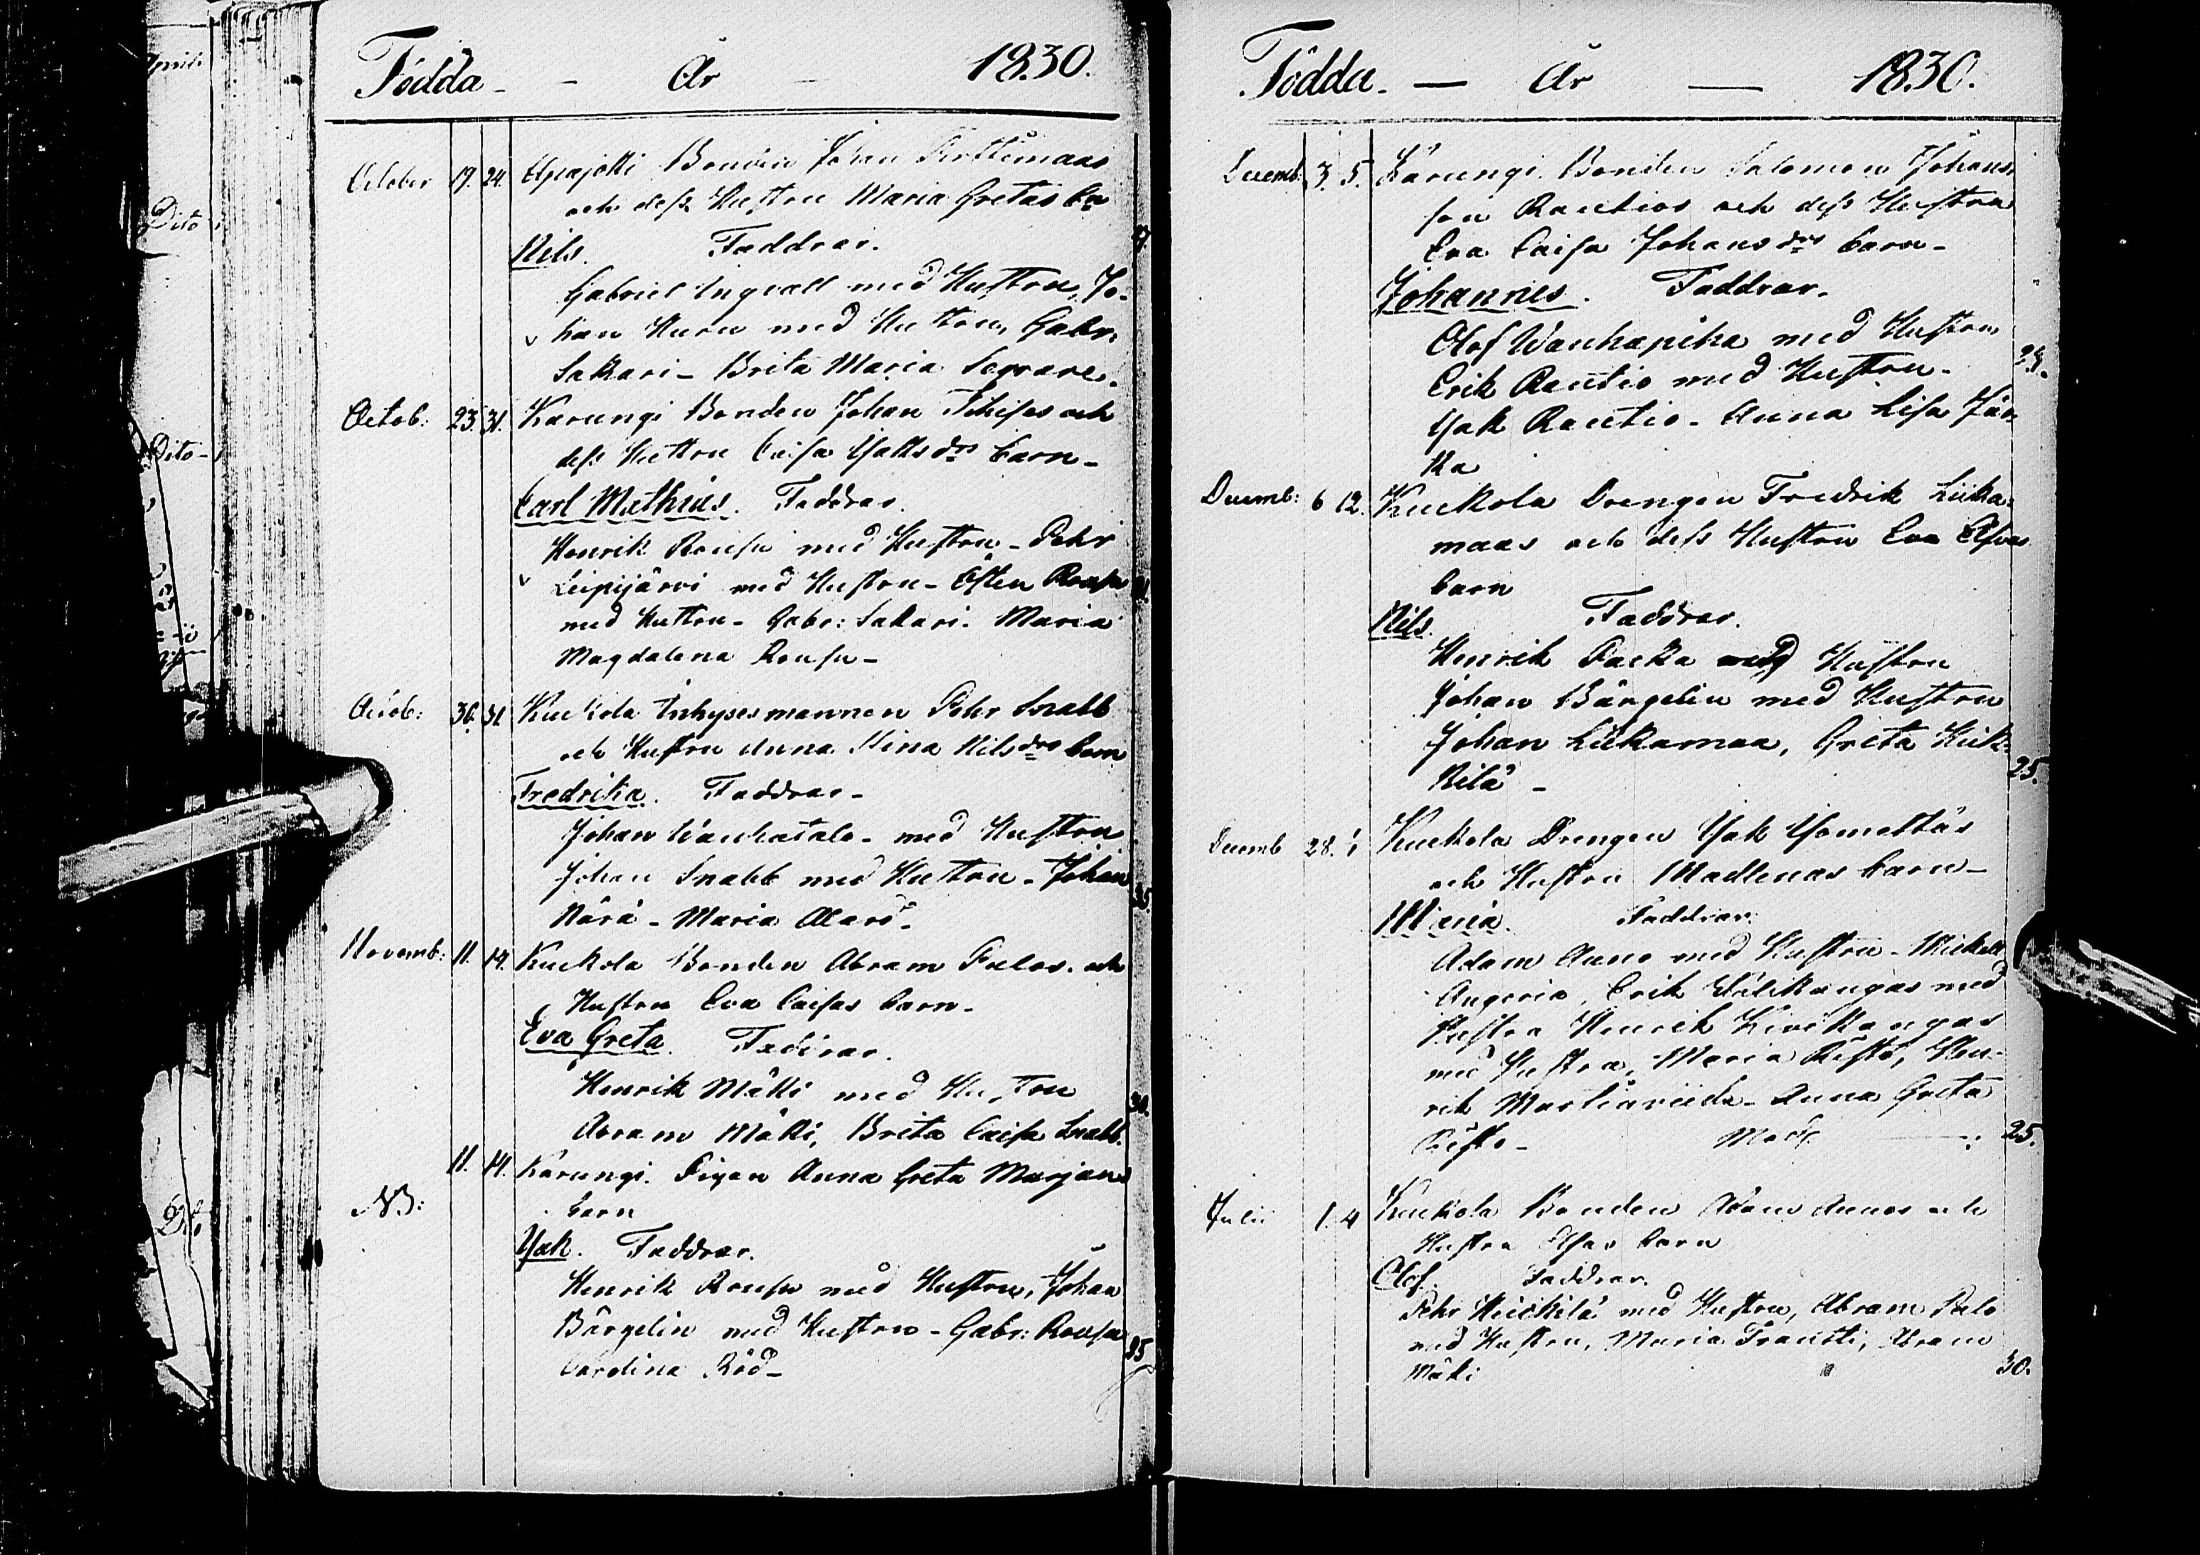 Födda - År - 1830.
October 19. 24. Bonden Johan
och dess Hustru Maria Gretas
Nils. Faddrar. 27.
Gabriel Engvall med Hustru, Jo-
han med Hustru, Gabr:
Sakari - Brita Maria
Octob: 23. 31. Karungi Bonden Johan och
dess Hustru Caisa Jaksdrs barn -
Carl Mathias. Faddrar.
Henrik Rousu med Hustru - Pehr
Leipijärvi med Hustru - Östen Rousu
med Hustru - Gabr: Sakari. Maria
Magdalena Rousu -
Octob: 30. 31. Kuckola Inhysesmannen Pehr Snabb
och Hustru Anna Stina Nilsdrs barn
Fredrika. Faddrar -
Johan med Hustru
Johan Snabb med Hustru - Johan
Närä - Maria Alarö -
35.
Novemb: 11. 14. Kuckola Bonden Abram Palos och
Hustru Eva Caisas barn -
Eva Greta. Faddrar.
Henrik Mäki med Hustru
30.
Abram Mäki, Brita Caisa Snabb.
11. 14. Karungi. Pigan Anna Greta Marjas
NB: barn
Isak. Faddrar.
Henrik Rousu med Hustru, Johan
Bärgelin med Hustru - Gabr: Rousu
35
Carolina Röd -
Födda. - År - 1830.
Decemb: 3. 5. Karungi Bonden Salomon Johans
son Rautios och dess Hustru
Eva Caisa Johansdrs barn -
Johannes. Faddrar.
Olof Wanhapiha med Hustru
Erik Rautio med Hustru -
Isak Rautio - Anna Lisa Jun
ka
Decemb: 6 12. Kuckola Drengen Fredrik Liika-
maas och dess Hustru Eva Elsas
barn
Nils. Faddrar.
Henrik Packa med Hustru
Johan Bärgelin med Hustru
Johan Liikamaa, Greta Heik-
kilä -
25.
Decemb 28. 1 Kuckola Drengen Isak
och Hustru Madlenas barn -
Maria. Faddrar.
Adam Auno med Hustru - Mickell
Angeria, Erik Välikangas med
Hustru Henrik Kivikangas
med Hustru, Maria Risto, Hen-
rik Martinviida - Anna Greta
Risto - 25.
Julii 1. 4 Kuckola Bonden Adam Aunos och
Hustru Elsas barn
Olof. Faddrar.
Pehr Heickilä med Hustru, Abram Palo
med Hustru, Maria Frantti, Abram
Mäki 30.